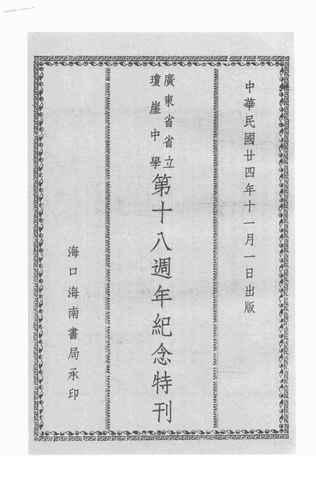 中華民國廿四年十一月一日出版
廣東省省立
瓊崖中學
第十八週年紀念特刊
海口海南書局承印